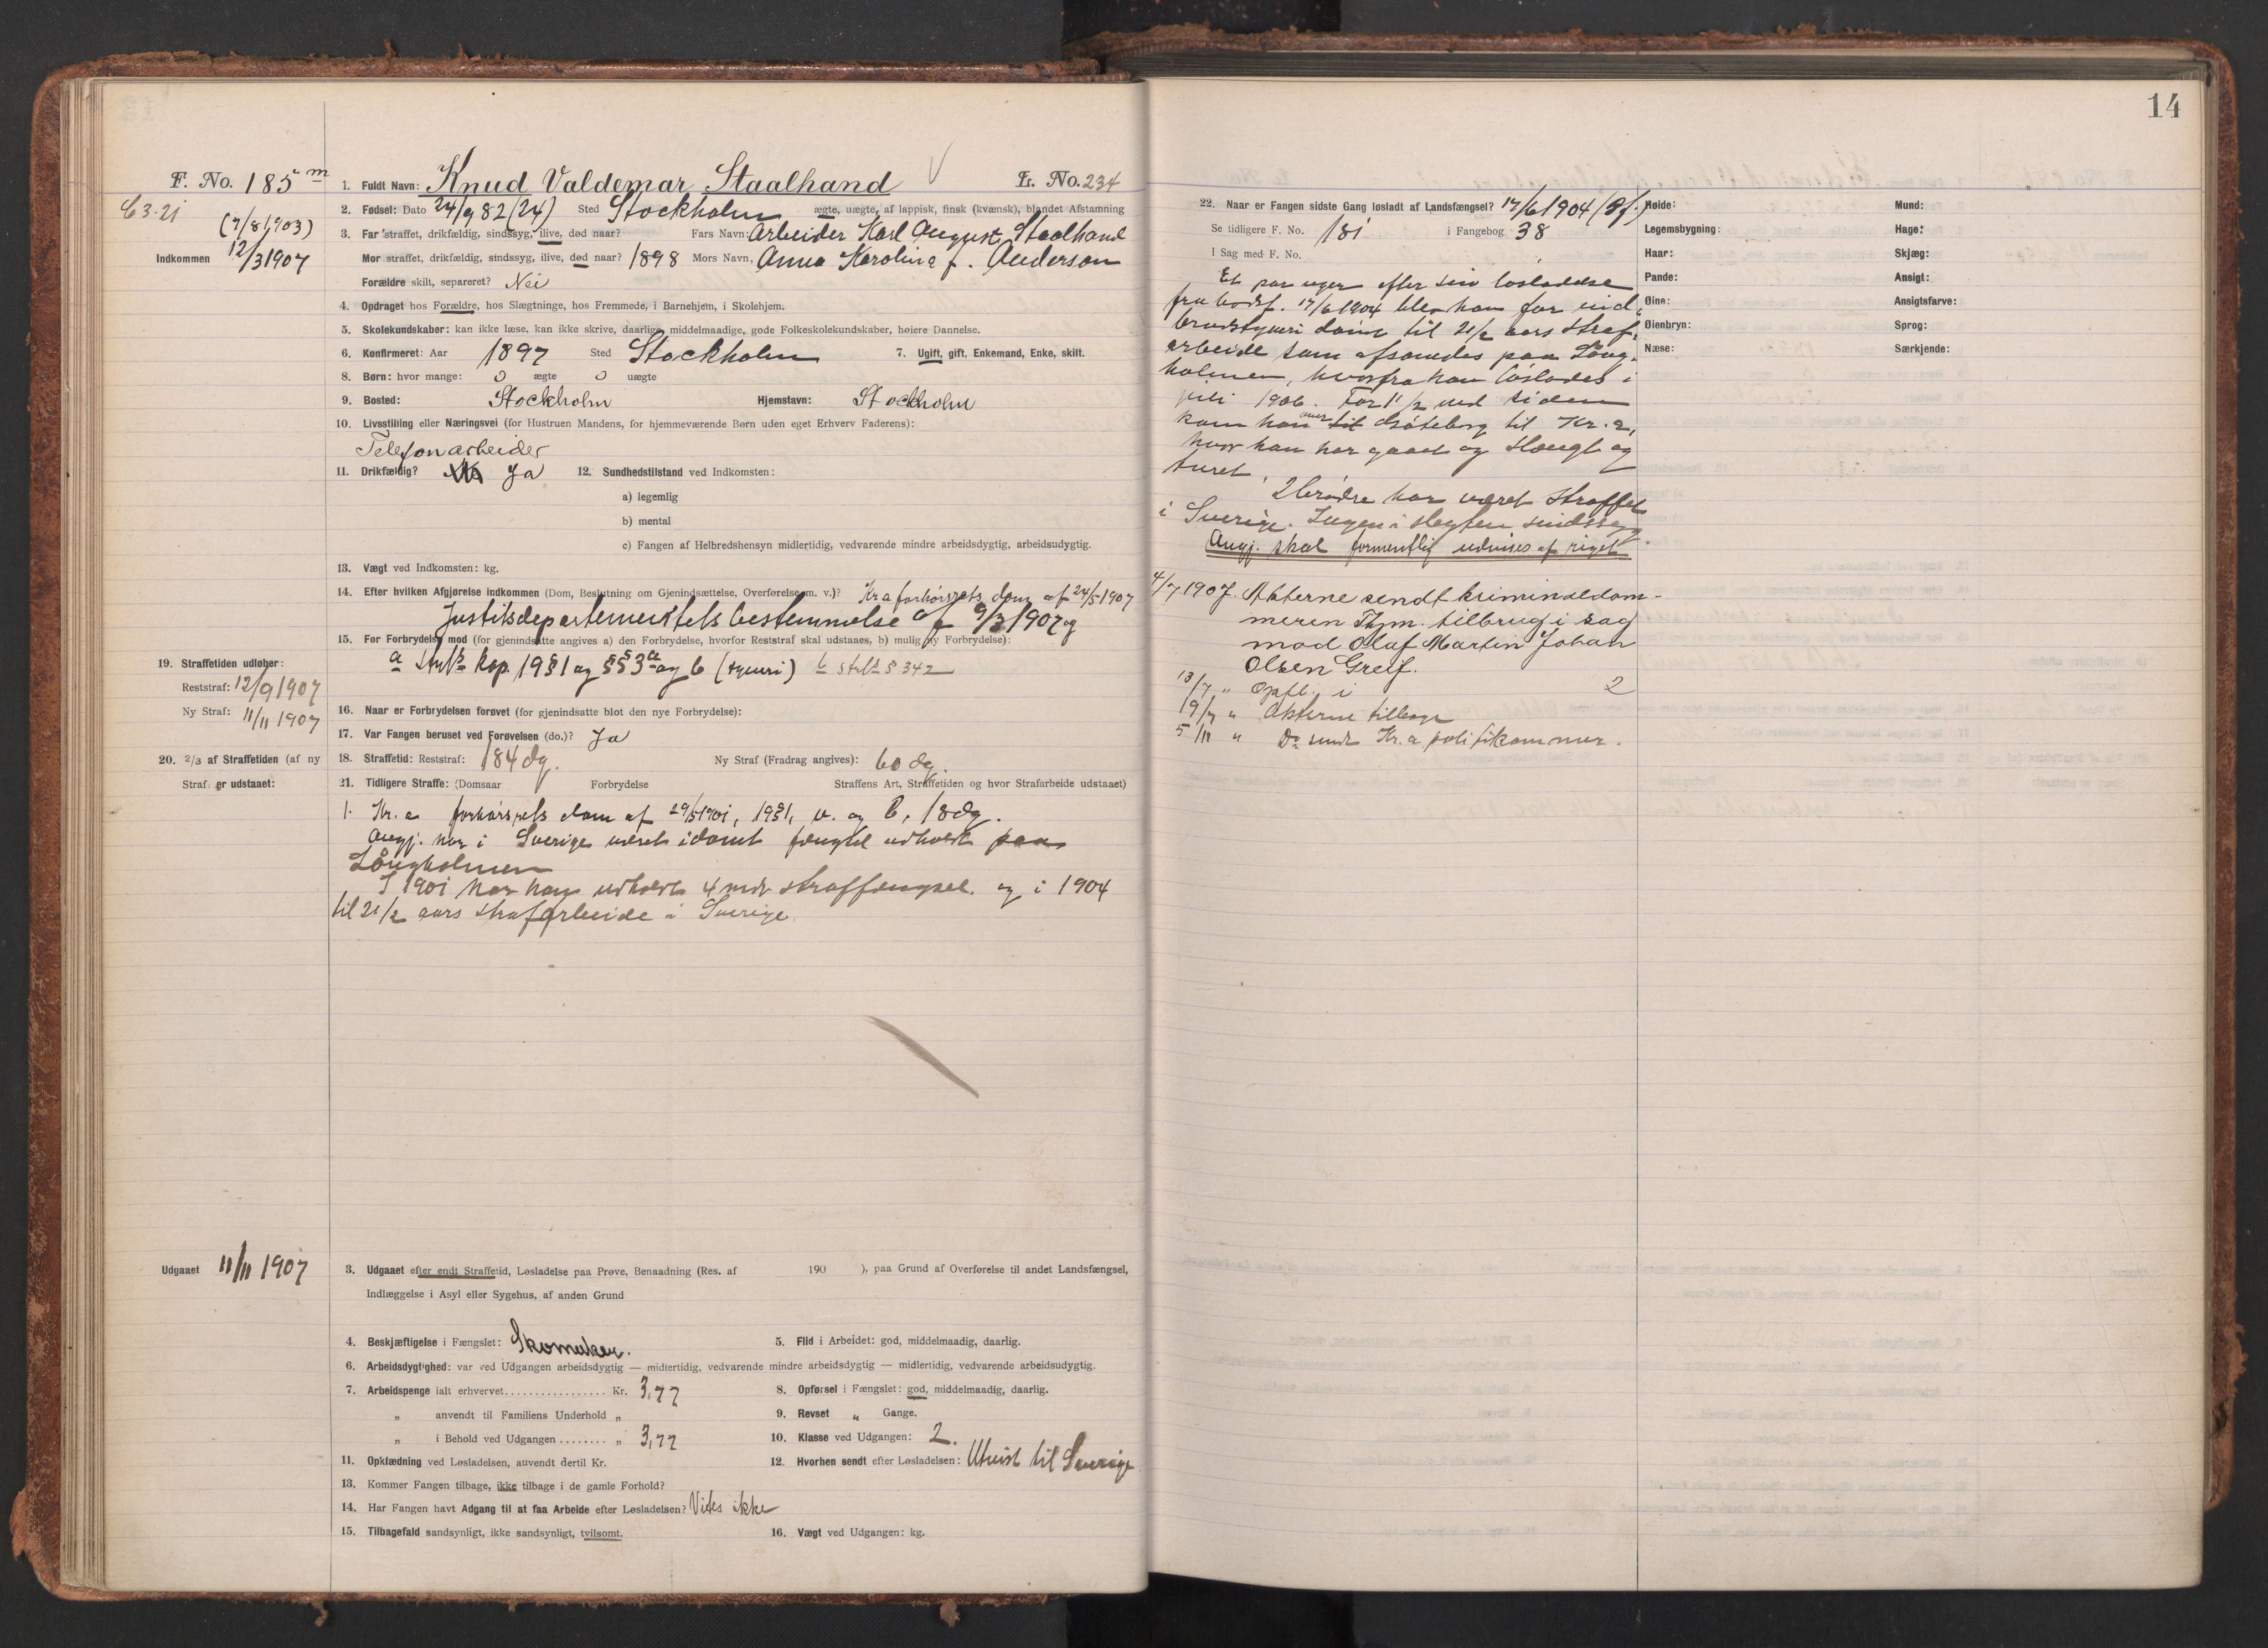 14
F. No. 185 m
1. Fuldt Navn: Knud Valdemar Staalhand V L. No. 234
C 3. 21
2. Fødsel: Dato 24/9 82 (24) Sted Stockholm ægte, uægte, af lappisk, finsk (kvænsk), blandet Afstamning
(7/8 1903)
3. Far straffet, drikfældig, sindssyg, ilive, død naar? Fars Navn: Arbeider Karl August Staalhand
Indkommen 12/3 1907
Mor straffet, drikfældig, sindssyg, ilive, død naar? 1898 Mors Navn, Anna Karolina f. Anderson
Forældre skilt, separeret? Nei
4. Opdraget hos Forældre, hos Slægtninge, hos Fremmede, i Barnehjem, i Skolehjem.
5. Skolekundskaber: kan ikke læse, kan ikke skrive, daarlige, middelmaadige, gode Folkeskolekundskaber, høiere Dannelse.
6. Konfirmeret: Aar 1897 Sted Stockholm 7. Ugift, gift, Enkemand, Enke, skilt.
8. Børn: hvor mange: 0 ægte 0 uægte
9. Bosted: Stockholm Hjemstavn: Stockholm
10. Livsstilling eller Næringsvei (for Hustruen Mandens, for hjemmeværende Børn uden eget Erhverv Faderens):
Telefonarbeider
11. Drikfældig? Ja 12. Sundhedstilstand ved Indkomsten:
a) legemlig
b) mental
c) Fangen af Helbredshensyn midlertidig, vedvarende mindre arbeidsdygtig, arbeidsudygtig.
13. Vægt ved Indkomsten: kg.
14. Efter hvilken Afgjørelse indkommen (Dom, Beslutning om Gjenindsættelse, Overførelse m. v.)? Kr.a forhørsrets dom af 24/5 1907
Justitsdepartementets bestemmelse af 9/3 1907 og
15. For Forbrydelse mod (for gjenindsatte angives a) den Forbrydelse, hvorfor Reststraf skal udstaaes, b) mulig ny Forbrydelse):
a Strfl. kap. 19 § 1 og §§ 3 a og b (tyveri) b strfl. § 342
19. Straffetiden udløber:
Reststraf: 12/9 1907
Ny Straf: 11/11 1907
16. Naar er Forbrydelsen forøvet (for gjenindsatte blot den nye Forbrydelse):
17. Var Fangen beruset ved Forøvelsen (do.)? Ja
20. 2/3 af Straffetiden (af ny
Straf er udstaaet:
18. Straffetid: Reststraf: 184 dg. Ny Straf (Fradrag angives): 60 dg.
21. Tidligere Straffe: (Domsaar Forbrydelse Straffens Art, Straffetiden og hvor Strafarbeide udstaaet)
1. Kr.a forhørsrets dom af 29/5 1901, 19 § 1, og 18 dg.
Angj. har i Sverige været idømt fængsel udholdt paa
Långholmen
I 1901 har han udholdt 4 mdr straffængsel og i 1904
til 2 1/2 aars strafarbeide i Sverige.
Udgaaet 11/11 1907
3. Udgaaet efter endt Straffetid, Løsladelse paa Prøve, Benaadning (Res. af 190 ), paa Grund af Overførelse til andet Landsfængsel,
Indlæggelse i Asyl eller Sygehus, af anden Grund
4. Beskjæftigelse i Fængslet: Skomaker. 5. Flid i Arbeidet: god, middelmaadig, daarlig.
6. Arbeidsdygtighed: var ved Udgangen arbeidsdygtig — midlertidig, vedvarende mindre arbeidsdygtig — midlertidig, vedvarende arbeidsudygtig.
7. Arbeidspenge ialt erhvervet................. Kr. 3,77 8. Opførsel i Fængslet: god, middelmaadig, daarlig.
„ anvendt til Familiens Underhold „ 9. Revset „ Gange.
„ i Behold ved Udgangen ........ „ 3,77 10. Klasse ved Udgangen: 2.
11. Opklædning ved Løsladelsen, anvendt dertil Kr. 12. Hvorhen sendt efter Løsladelsen: Utvist til Sverige
13. Kommer Fangen tilbage, ikke tilbage i de gamle Forhold?
14. Har Fangen havt Adgang til at faa Arbeide efter Løsladelsen? Vides ikke
15. Tilbagefald sandsynligt, ikke sandsynligt, tvilsomt. 16. Vægt ved Udgangen: kg.
22. Naar er Fangen sidste Gang løsladt af Landsfængsel? 17/6 1904 (Bf.)
Se tidligere F. No. 181 i Fangebog 38
I Sag med F. No.
Et par uger efter sin løsladelse
fra bodsf. 17/6 1904 blev han for ind-
brudstyveri dømt til 2 1/2 aars straf-
arbeide som afsonedes paa Lång-
holmen, hvorfra han løslades i
juli 1906. For 1 1/2 md siden
kom han over til Göteborg til Kr.a,
hvor han har gaaet og slængt og
turet.
2 brødre har været straffet
i Sverige. Ingen i slegten sindssyg.
Angj. skal formentlig udvises af riget
4/7 1907. Akterne sendt kriminaldom-
meren Thjm. tilbrug i sag
mod Olaf Martin Johan
Olsen Greif.
13/7 „ Opfl. i 2
19/7 „ Akterne tilbage
5/11 „ Do sendt Kr.a politikammer.
Høide: Mund:
Legemsbygning: Hage:
Haar: Skjæg:
Pande: Ansigt:
Øine: Ansigtsfarve:
Øienbryn: Sprog:
Næse: Særkjende: